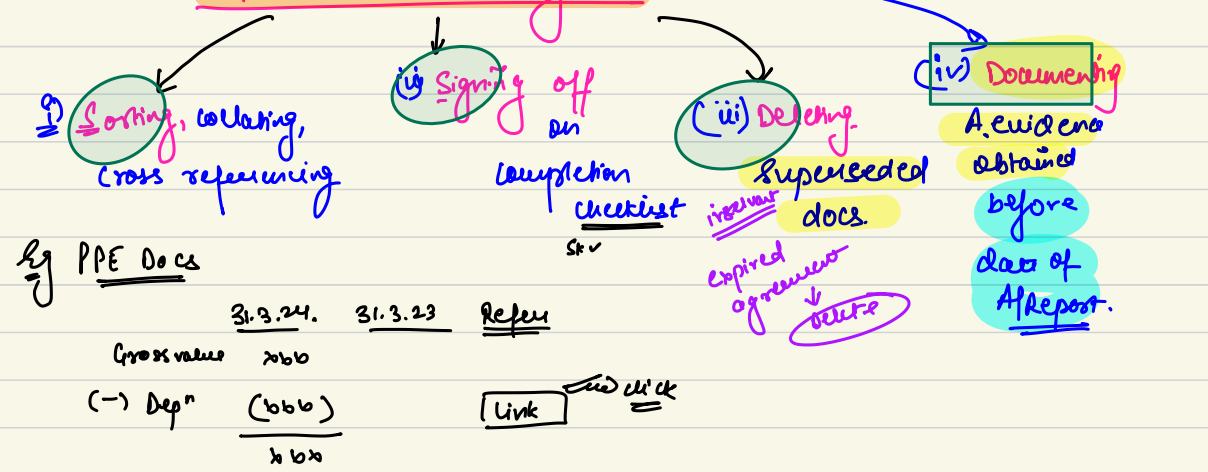 i) Sorting, collating,
cross referencing
(ii) Signing off
on
completion
checklist
SKV
(iii) Deleting
Superseded
docs.
irrelevant
expired
agreement
↓
Delete
(iv) Documenting
A. evidence
obtained
before
date of
A/Report.
Eg PPE Docs
31.3.24. 31.3.23 Refer
Gross value xbb
(-) Depⁿ (bbb) Link click
xbx